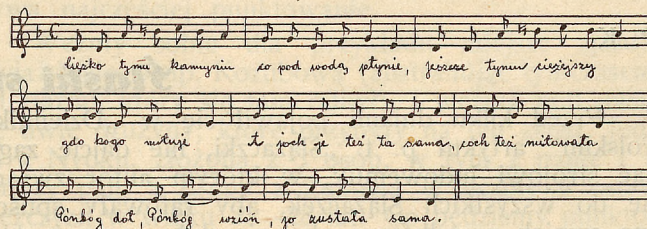 ciężko tymu kamyniu co pod wodą płynie, jeszcze tymu ciężejszy
gdo kogo miłuje A joch je też ta sama, coch też miłowała
Pónbóg doł, Pónbóg wzión, jo zustała sama.